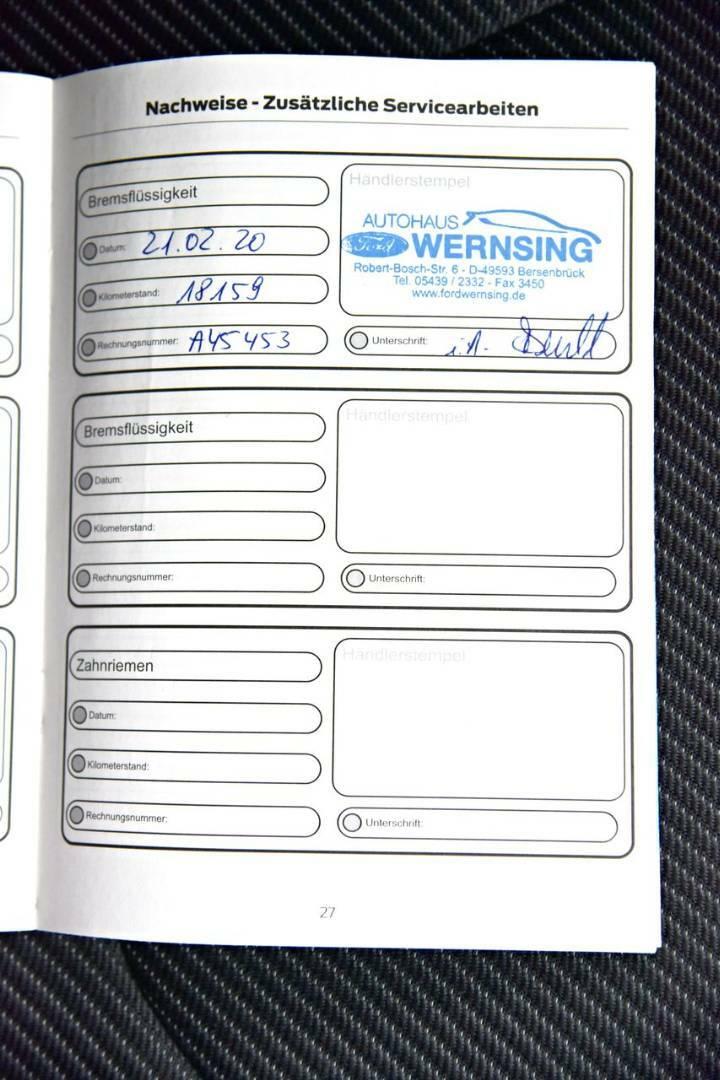 Nachweise - Zusätzliche Servicearbeiten
Bremsflüssigkeit
Datum: 21.02.20
Kilometerstand: 18159
Rechnungsnummer: A45453
Händlerstempel
AUTOHAUS
Ford WERNSING
Robert-Bosch-Str. 6 - D-49593 Bersenbrück
Tel. 05439 / 2332 - Fax 3450
www.fordwernsing.de
Unterschrift: i.A.
Bremsflüssigkeit
Datum:
Kilometerstand:
Rechnungsnummer:
Händlerstempel
Unterschrift:
Zahnriemen
Datum:
Kilometerstand:
Rechnungsnummer:
Händlerstempel
Unterschrift:
27